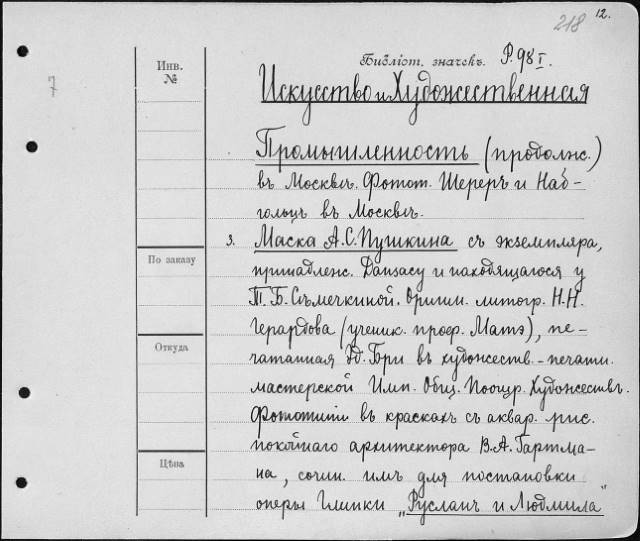 218 12.
7
Инв.
№
Библіот. значекъ. P.98 I.
Искусство и Художественная
Промышленность (продолж.)
въ Москвѣ. Фотот. Шереръ и Наб-
гольцъ въ Москвѣ.
3. Маска А.С. Пушкина съ экземпляра,
принадлеж. Данзасу и находящагося у
Т.Б. Сѣмечкиной. Оригин. литогр. Н.Н.
Герардова (ученик. проф. Матэ), пе-
чатанная Эд. Бри въ художеств.-печатн.
мастерской Имп. Общ. Поощр. Художествъ.
Фототипіи въ краскахъ съ аквар. рис.
покойнаго архитектора В.А. Гартма-
на, сочин. имъ для постановки
оперы Глинки „Русланъ и Людмила"
По заказу
Откуда
Цѣна